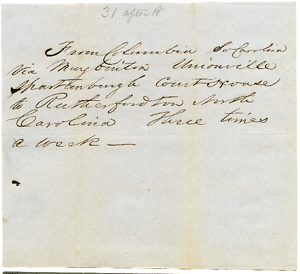 31 after 18
From Columbia So Carolina
via Maybinton Unionville
Spartenburgh Court House
to Rutherfordton North
Carolina Three times
a week —